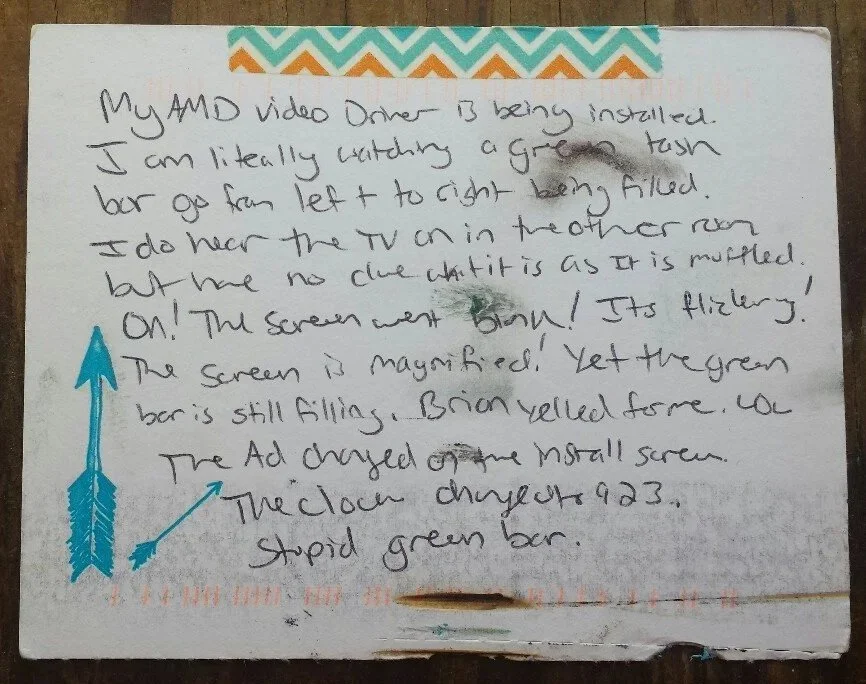 My AMD video Driver is being installed.
I am liteally watching a green task
bar go from left to right being filled.
I do hear the TV on in the other room
but have no clue what it is as It is muffled.
Oh! The screen went blank! Its flickering!
The screen is magnified! Yet the green
bar is still filling. Brian yelled for me. LOL
The Ad changed on the install screen.
The clock changed to 923.
Stupid green bar.